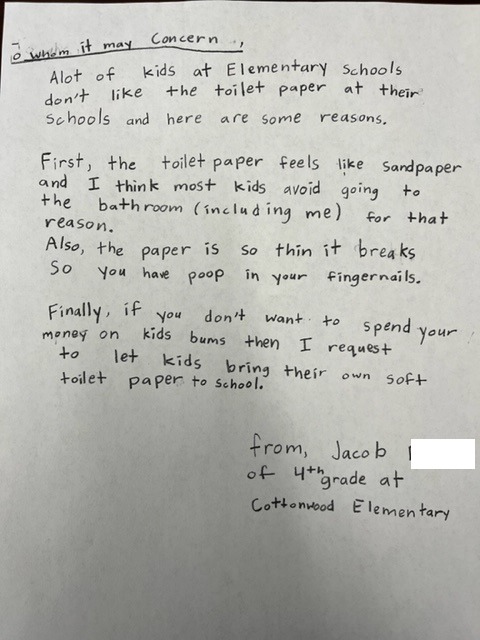 To whom it may Concern,
Alot of kids at Elementary Schools
don't like the toilet paper at their
Schools and here are some reasons.
First, the toilet paper feels like Sandpaper
and I think most kids avoid going to
the bathroom (including me) for that
reason.
Also, the paper is so thin it breaks
So you have poop in your fingernails.
Finally, if you don't want to spend your
money on kids bums then I request
to let kids bring their own soft
toilet paper to school.
from, Jacob
of 4th grade at
Cottonwood Elementary